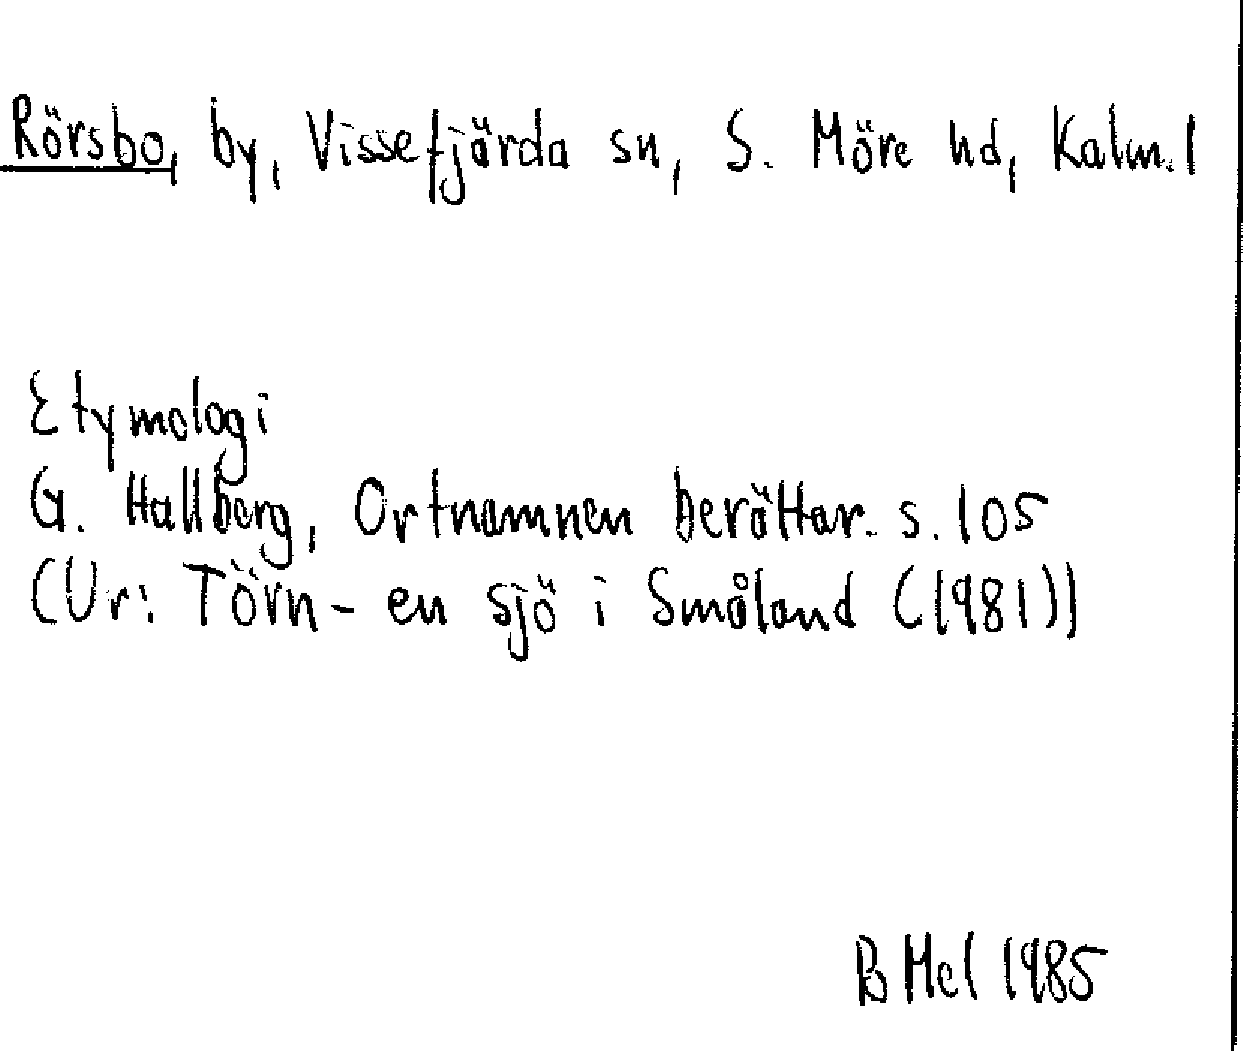 Rörsbo, by, Vissefjärda sn, S. Möre hd, Kalm. l
Etymologi
G. Hallberg, Ortnamnen berättar. s. 105
(Ur: Törn - en sjö i Småland (1981))
B Mel 1985